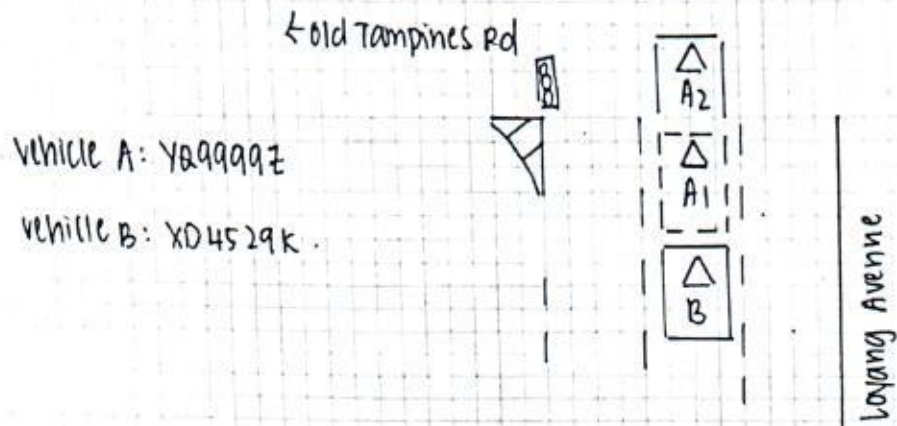 ←old Tampines Rd
A2
vehicle A: YQ9999Z
A1
vehicle B: XD4529K.
B
Loyang Avenue